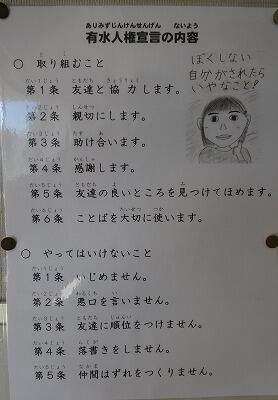 ありみずじんけんせんげん ないよう
有水人権宣言の内容
○ 取り組むこと
第1条 友達と協力します。
第2条 親切にします。
第3条 助け合います。
第4条 感謝します。
第5条 友達の良いところを見つけてほめます。
第6条 ことばを大切に使います。
ぼくしない
自分がされたら
いやなこと!
○ やってはいけないこと
第1条 いじめません。
第2条 悪口を言いません。
第3条 友達に順位をつけません。
第4条 落書きをしません。
第5条 仲間はずれをつくりません。